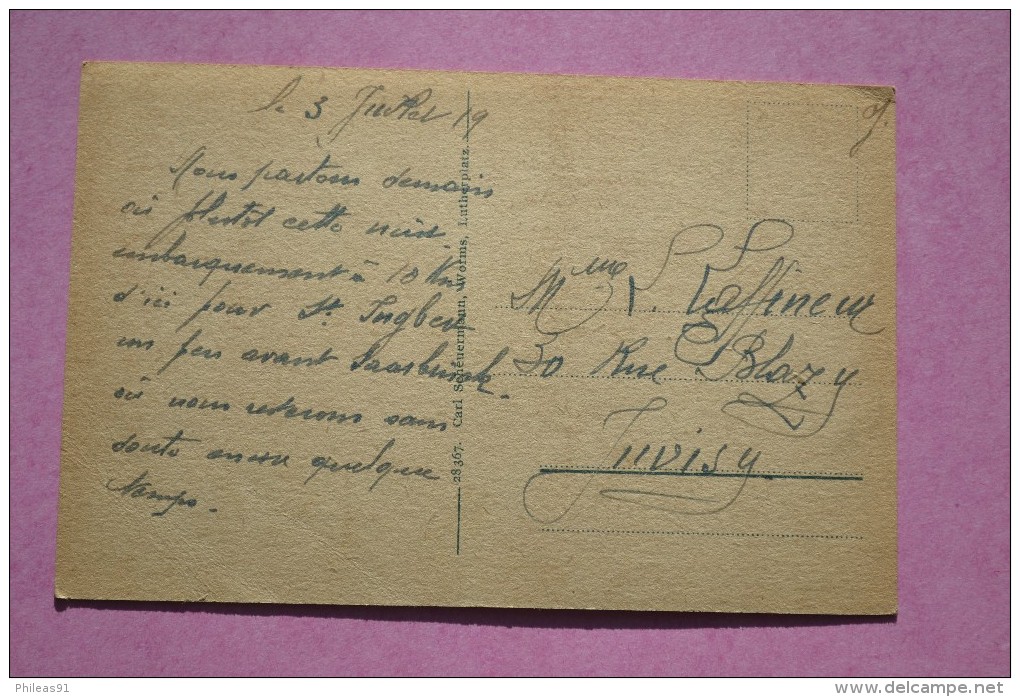 le 3 Juillet 19
Nous partons demain
ou plutôt cette nuit
embarquement à 10 Km
d'ici pour St Ingbert
un peu avant Saarbruck
où nous resterons sans
doute encore quelque
temps.
28367. Carl Scheuermann, Worms, Lutherplatz.
Mme L. Laffineur
50 Rue Blazy
Juvisy
Phileas91
www.delcampe.net